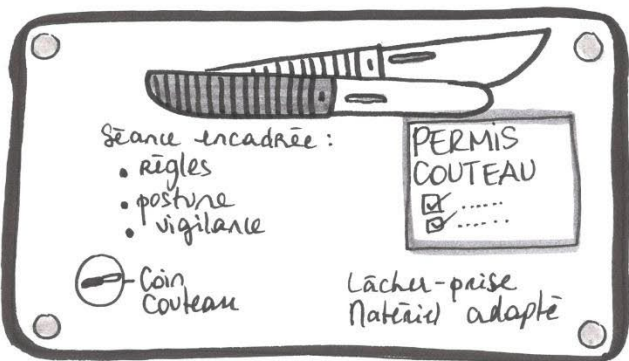 Séance encadrée :
• Règles
• posture
• vigilance
PERMIS
COUTEAU
☑ ......
☑ ......
Coin
Couteau
Lâcher-prise
Matériel adapté